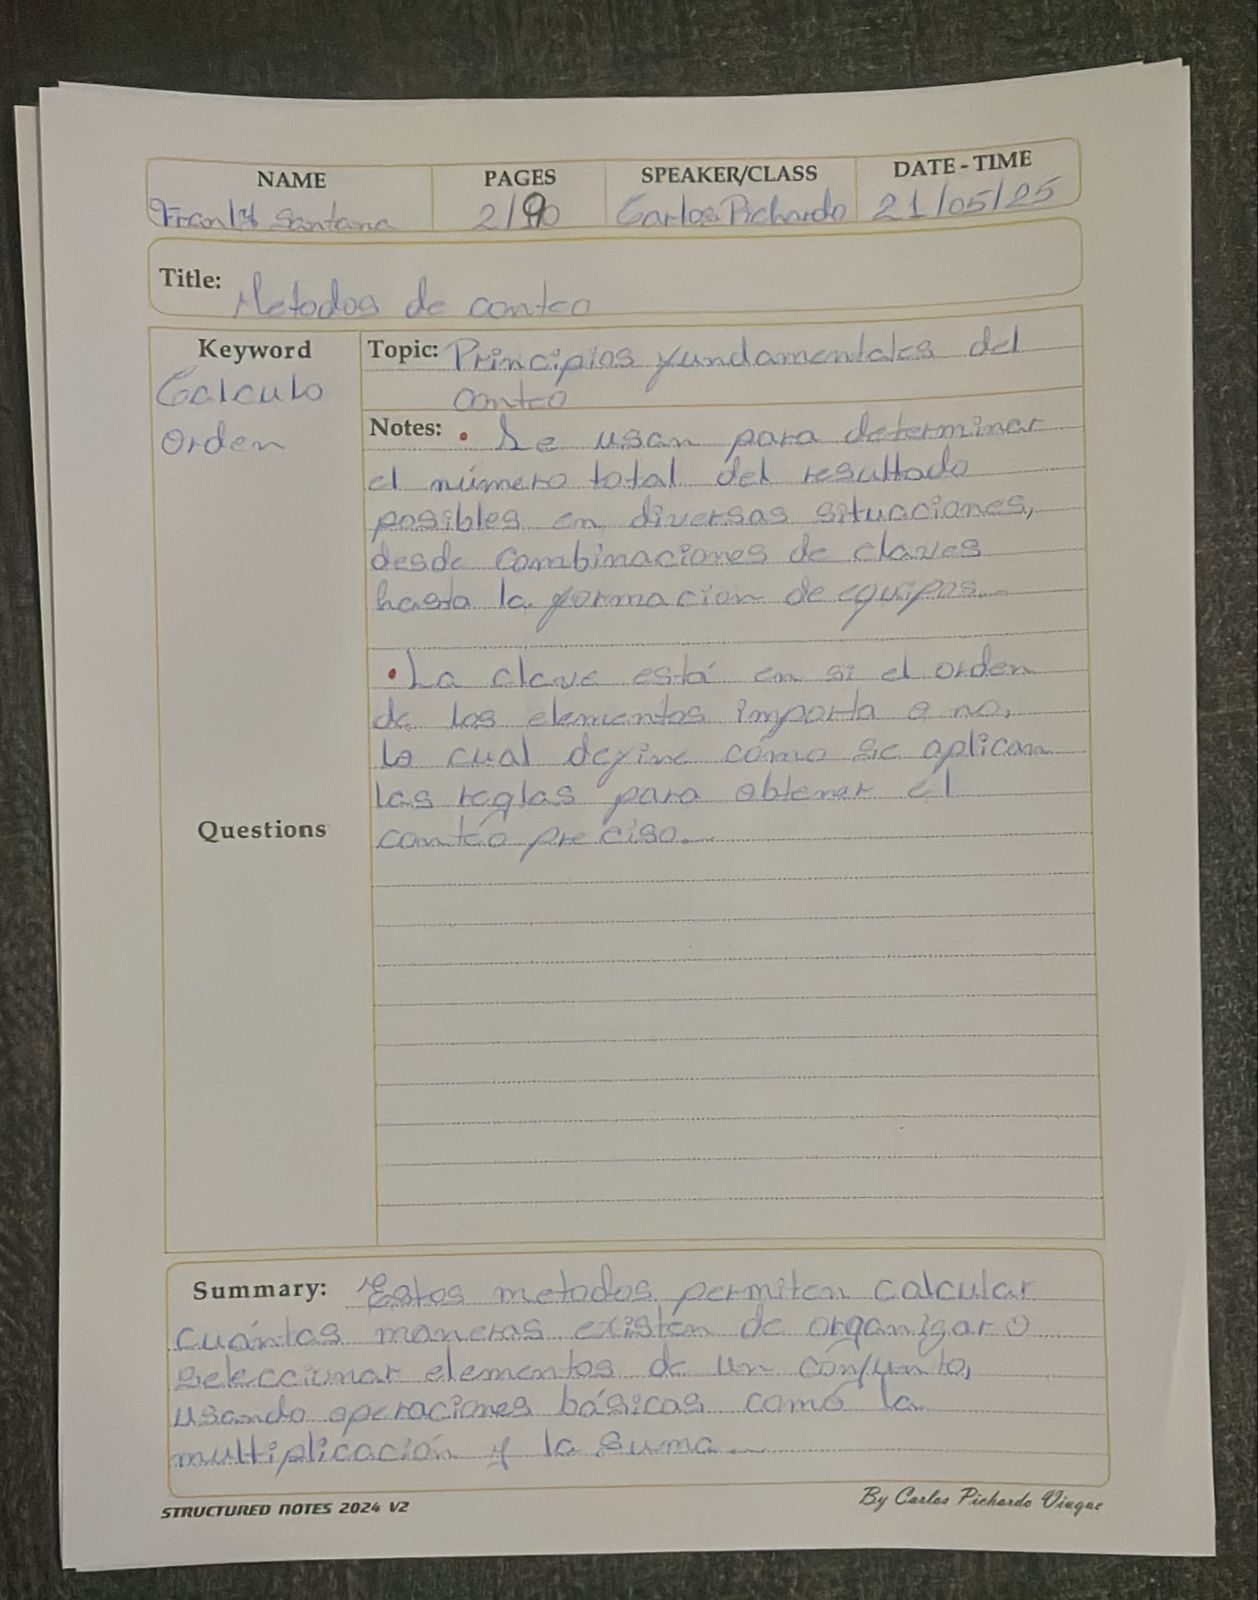 NAME PAGES SPEAKER/CLASS DATE - TIME
Santana 2/ Carlos Pichardo 21/05/25
Title: Metodos de conteo
Keyword
Calculo
Orden
Topic: Principios fundamentales del
conteo
Notes: • Se usan para determinar
el número total del resultado
posibles en diversas situaciones,
desde combinaciones de claves
hasta la formacion de equipos.
• La clave está en si el orden
de los elementos importa o no,
lo cual define cómo se aplican
las reglas para obtener el
conteo preciso.
Questions
Summary: Estos metodos permiten calcular
cuántas maneras existen de organizar o
seleccionar elementos de un conjunto,
usando operaciones básicas como la
multiplicación y la suma.
STRUCTURED NOTES 2024 V2
By Carlos Pichardo Viuque